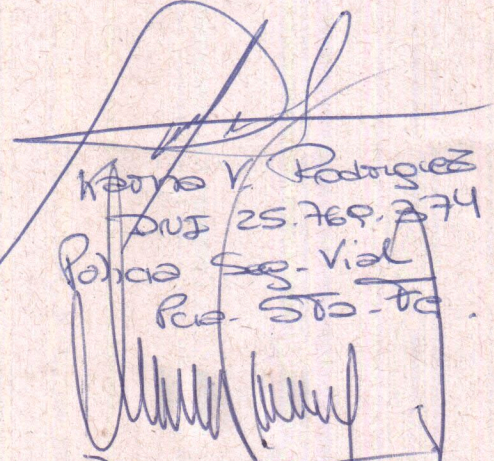 Karina V. Rodriguez
DNI 25.769.374
Policia Seg. Vial
Pcia. Sta. Fe.